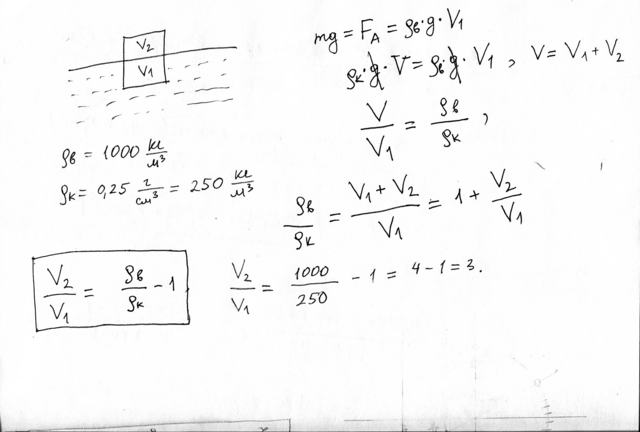 V₂
V₁
mg = F_A = ρв·g·V₁
ρк·g·V = ρв·g·V₁, V = V₁ + V₂
V/V₁ = ρв/ρк,
ρв = 1000 кг/м³
ρк = 0,25 г/см³ = 250 кг/м³
ρв/ρк = (V₁ + V₂)/V₁ = 1 + V₂/V₁
V₂/V₁ = ρв/ρк - 1
V₂/V₁ = 1000/250 - 1 = 4 - 1 = 3.